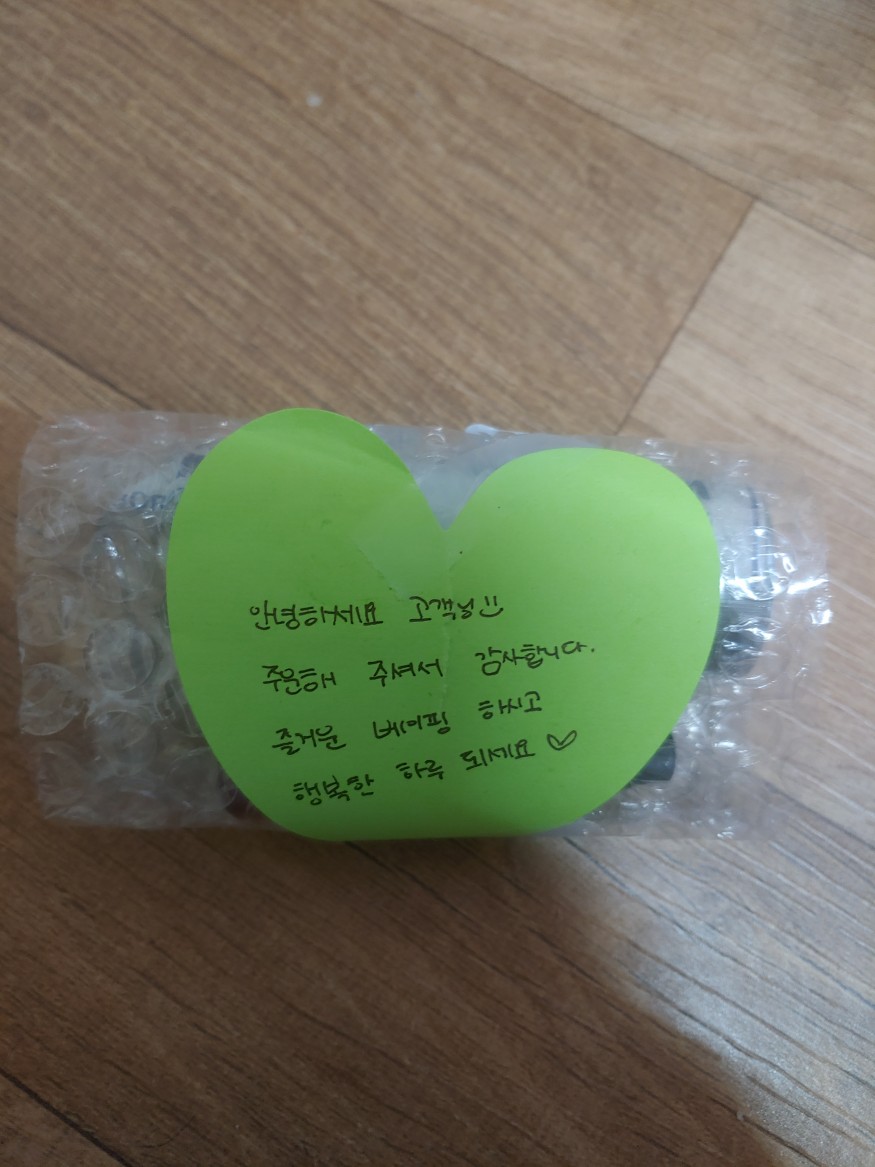 안녕하세요 고객님 :)
주문해 주셔서 감사합니다.
즐거운 베이핑 하시고
행복한 하루 되세요 ♡